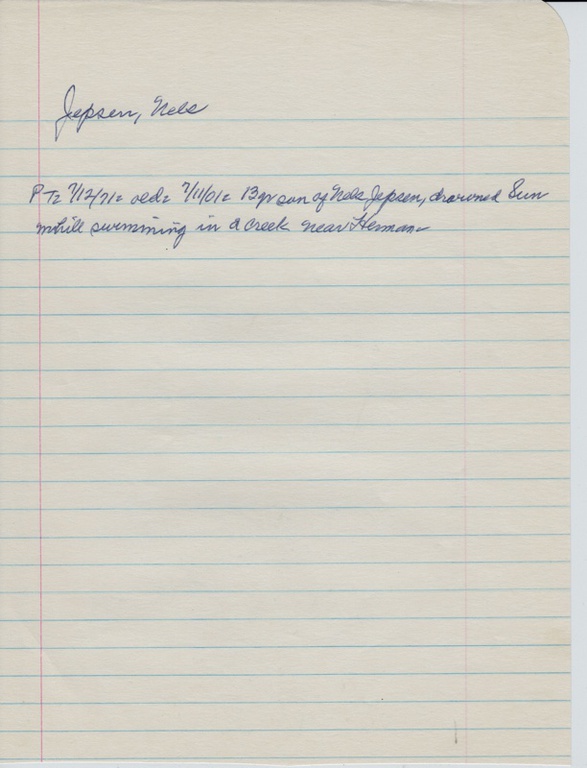 Jepsen, Nels
PT= 7/12/71= old= 7/11/01= 13 yr son of Nels Jepsen, drowned Sun
while swimming in a creek near Herman=